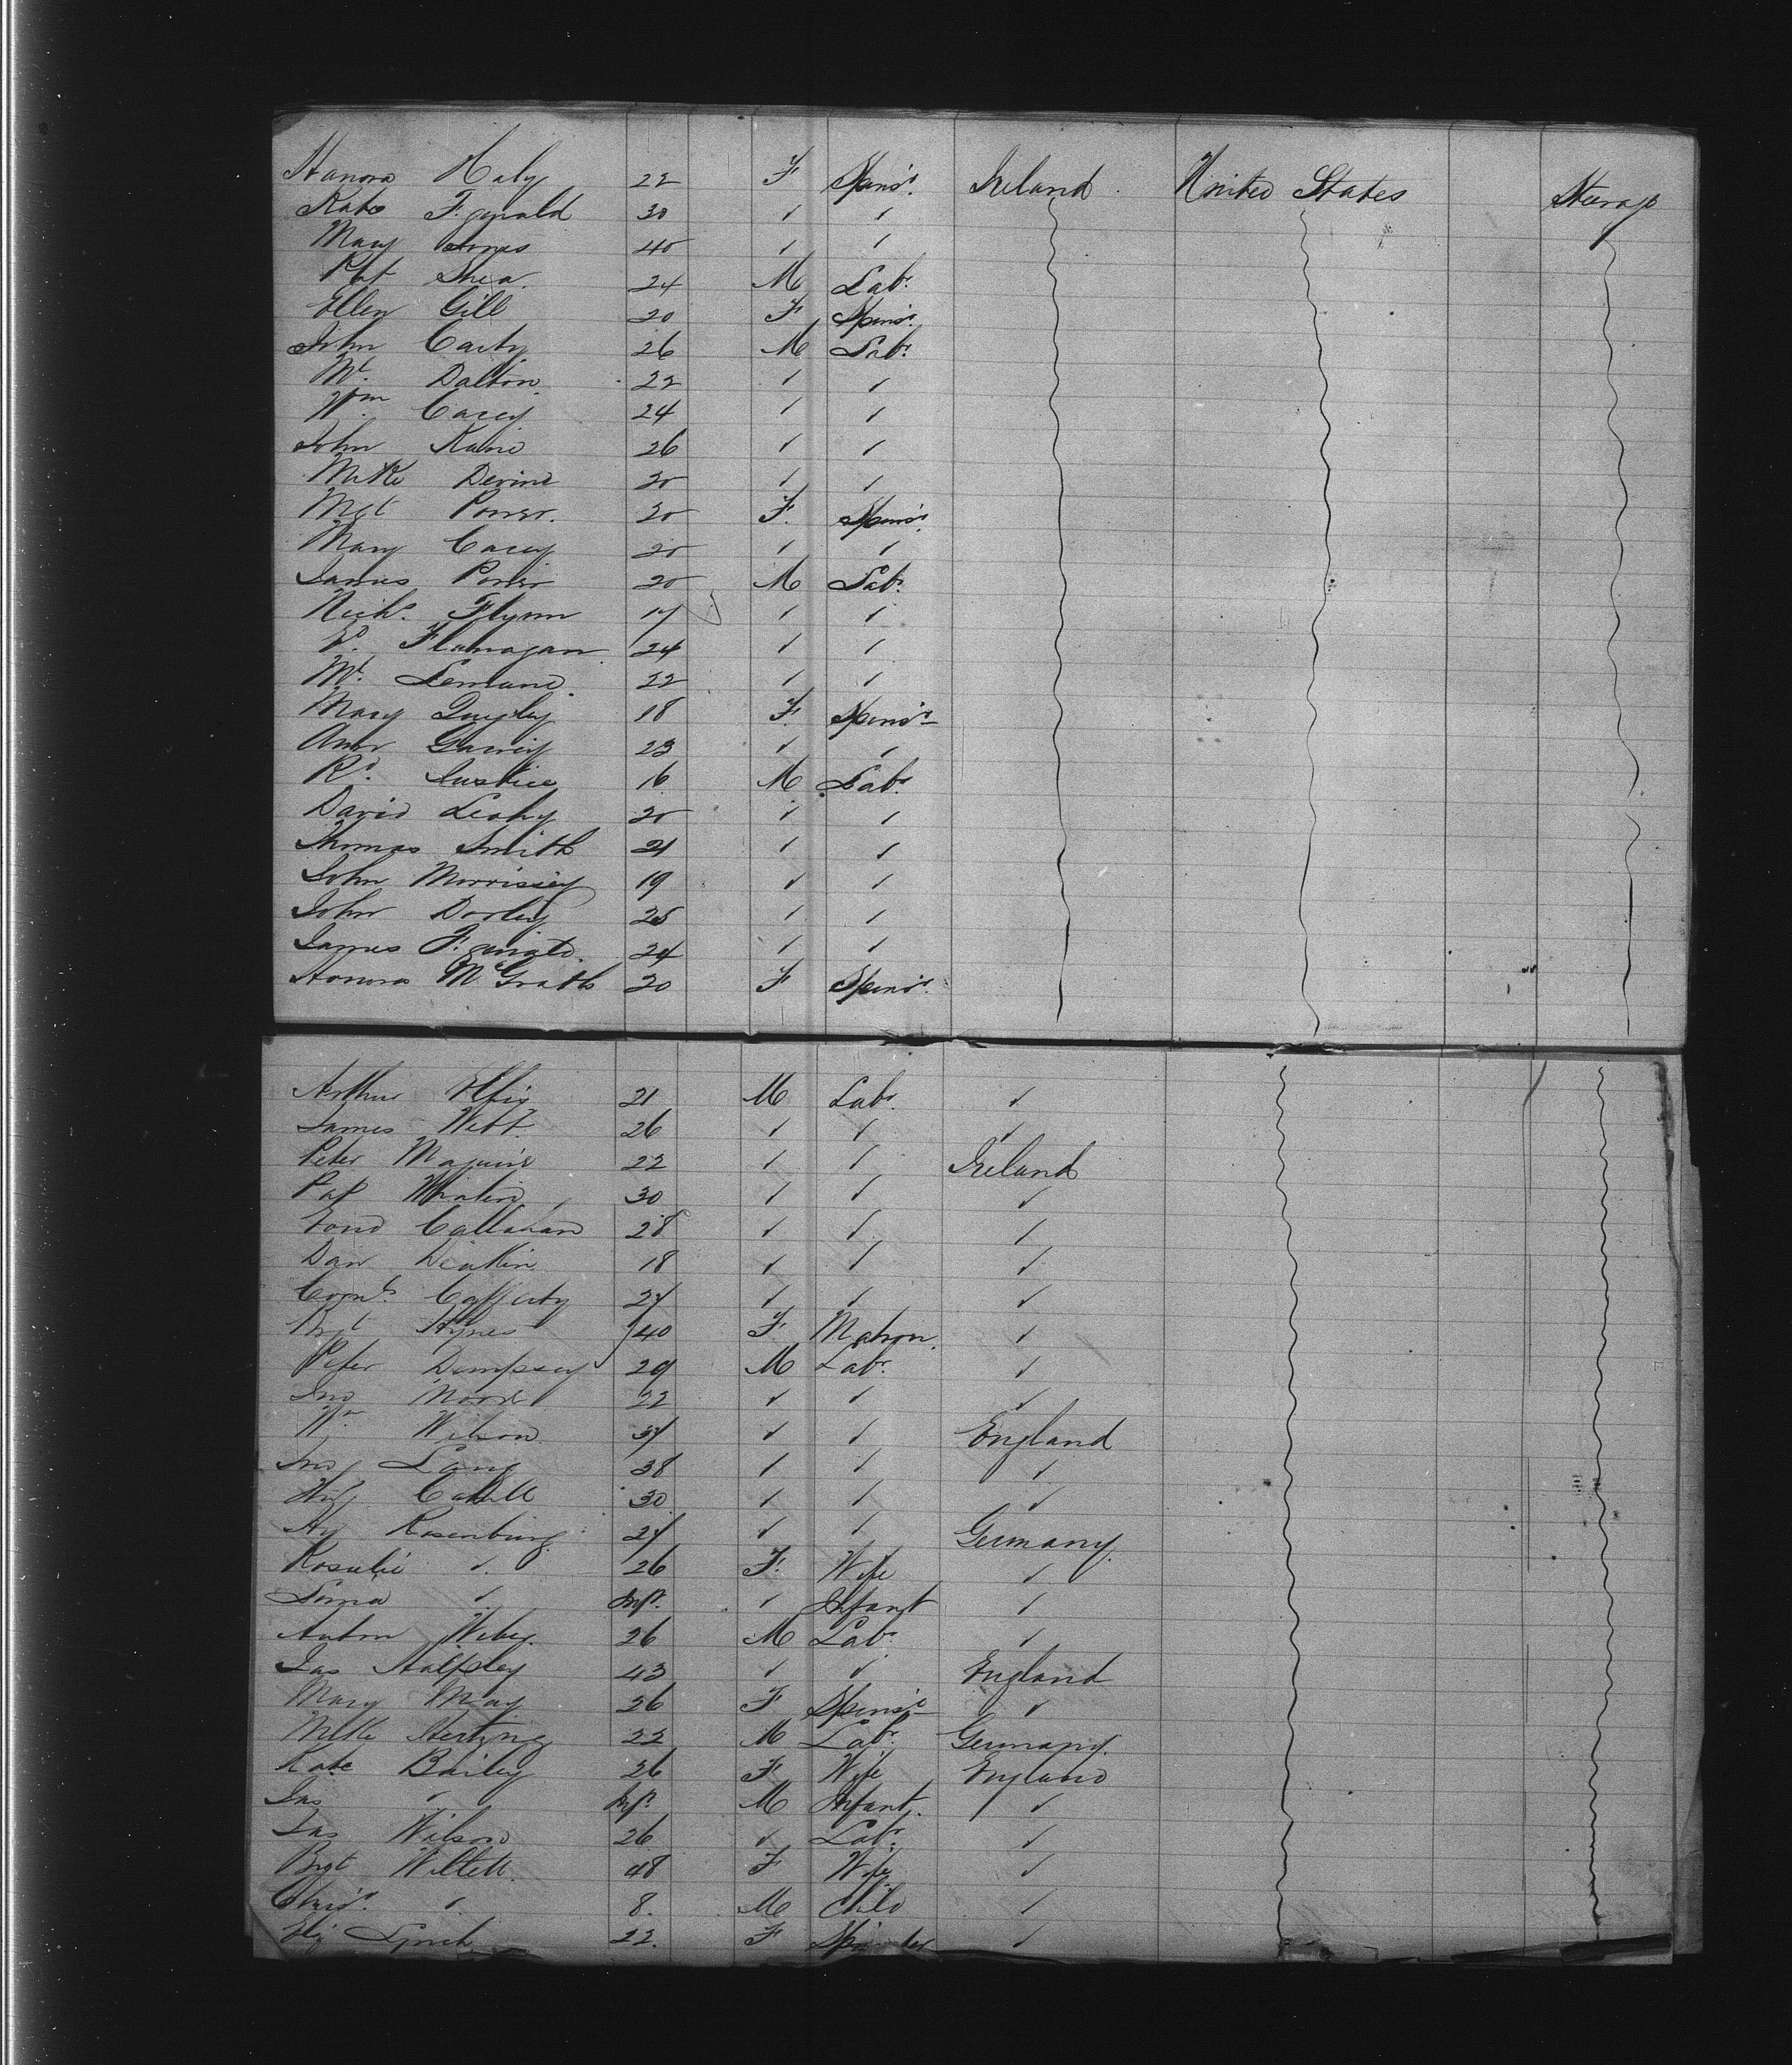 Hanora Haly 22 F Spinsr. Ireland United States Steerage
Kate F.gerald 30 ✓ ✓
Mary 40 ✓ ✓
Pat Shea. 24 M Labr.
Ellen Gill 20 F Spinsr.
John Carty 26 M Labr.
Mt. Dalton 22 ✓ ✓
Wm Casey 24 ✓ ✓
John Kane 26 ✓ ✓
Mike Devine 20 ✓ ✓
Mgt Power. 20 F. Spinsr.
Mary Casey 20 ✓ ✓
James Power 20 M Labr.
Nichs. Flynn 17 ✓ ✓
Flanagan 24 ✓ ✓
Mt. 22 ✓ ✓
Mary Quigley 18 F. Spinsr
Ann 23 ✓ ✓
Rd. Justice 16 M Labr.
David Leahy 20 ✓ ✓
Thomas Smith 21 ✓ ✓
John Morrissey 19 ✓ ✓
John Dooley 25 ✓ ✓
James 24 ✓ ✓
Honora McGrath 20 F Spinsr.
Arthur 21 M Labr. ✓
James Webb 26 ✓ ✓ ✓
Peter Maguire 22 ✓ ✓ Ireland
Pat 30 ✓ ✓ ✓
Callahan 28 ✓ ✓ ✓
Dan 18 ✓ ✓ ✓
Corns. Cafferty 27 ✓ ✓ ✓
Brgt Hynes 40 F Matron. ✓
Peter Dempsey 29 M Labr. ✓
Jno Moore 22 ✓ ✓ ✓
Wm Wilson 37 ✓ ✓ England
Jno Lang 38 ✓ ✓ ✓
Cahill 30 ✓ ✓ ✓
Hy Rosenburg 27 ✓ ✓ Germany.
Rosalie ✓ 26 F. Wife ✓
✓ Inft. ✓ Infant ✓
Anton Weber. 26 M Labr. ✓
Jas 43 ✓ ✓ England
Mary May 26 F Spinsr ✓
22 M Labr. Germany.
Kate Bailey 26 F Wife England
Jas ✓ Inft. M Infant. ✓
Jas Wilson 26 ✓ Labr. ✓
Brgt Willett. 48 F Wife ✓
✓ 8. M Child ✓
Eliz Lynch 22. F Spinster ✓